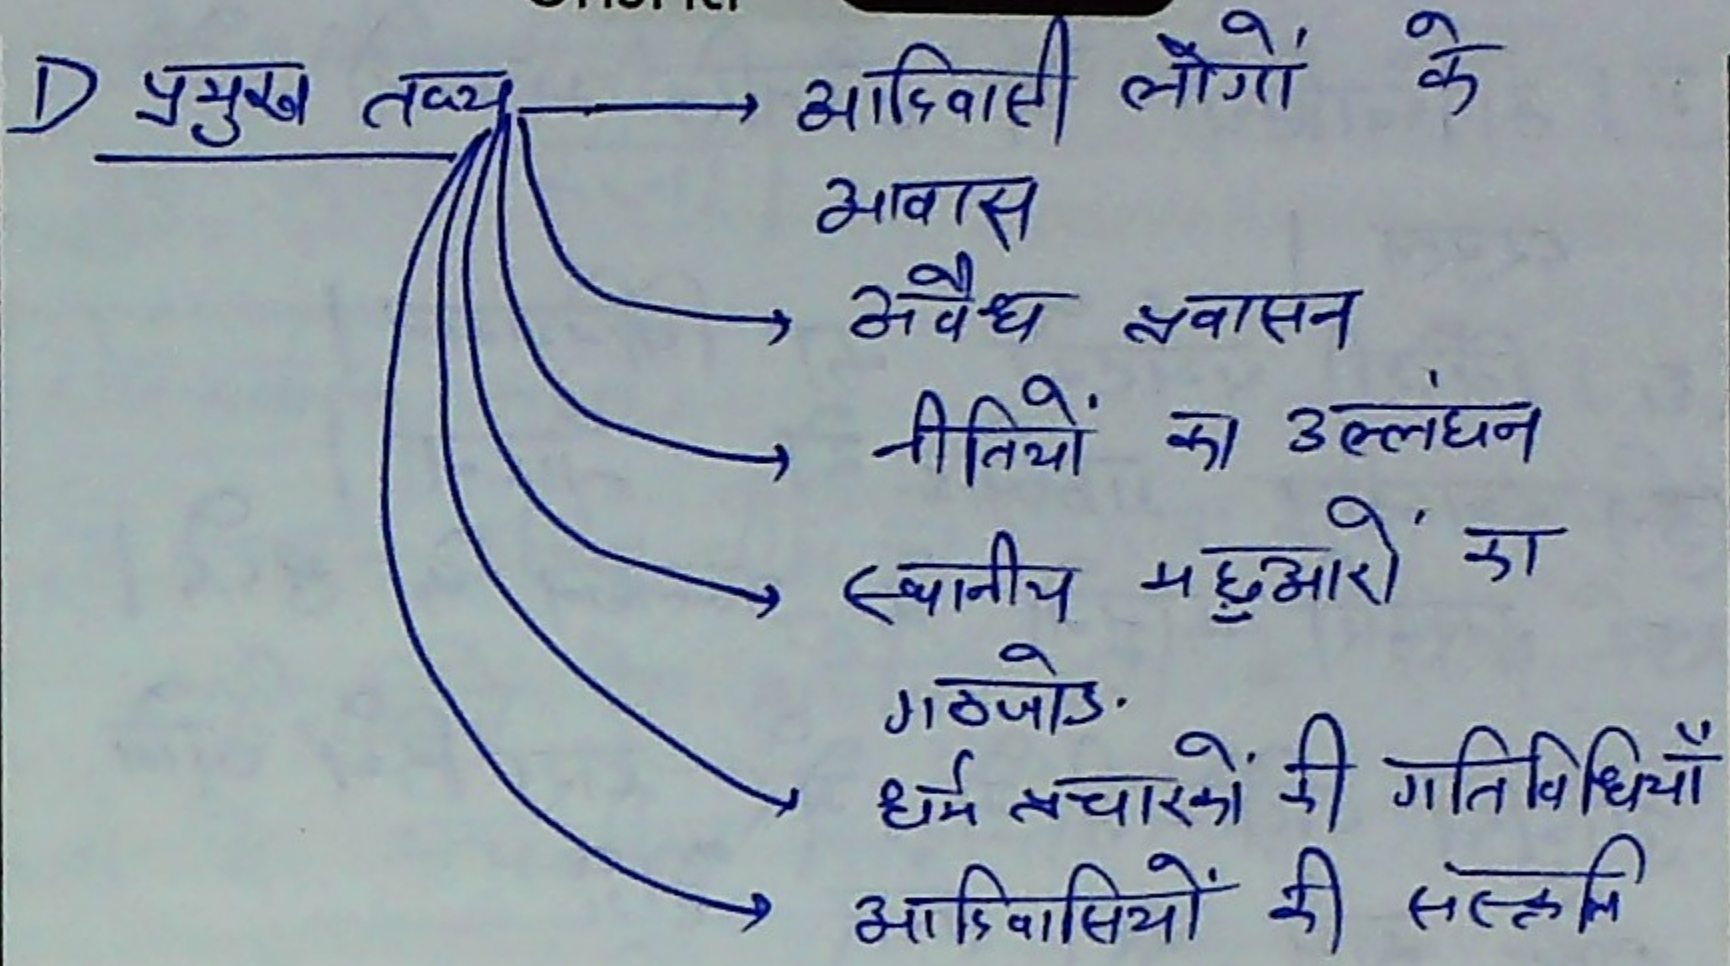 D प्रमुख तथ्य → आदिवासी लोगों के
आवास
→ अवैध प्रवासन
→ नीतियों का उल्लंघन
→ स्थानीय मछुआरों का
गठजोड़
→ धर्म प्रचारकों की गतिविधियाँ
→ आदिवासियों की संस्कृति